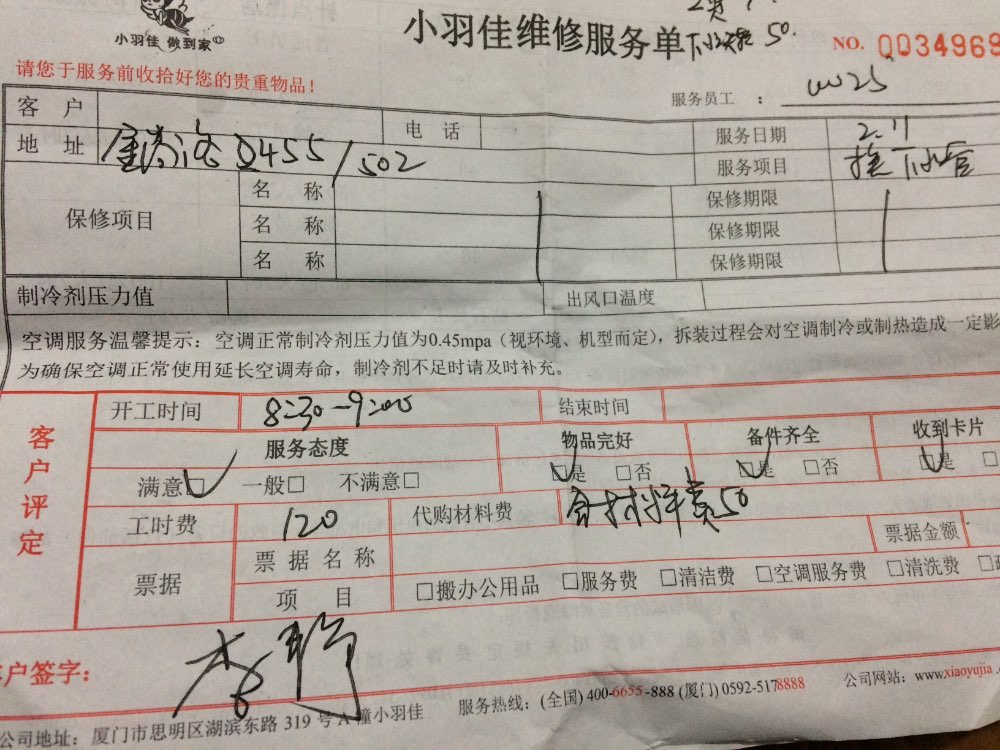 小羽佳 做到家
小羽佳维修服务单 下水管 50.
NO. 0034969
请您于服务前收拾好您的贵重物品！
服务员工 ： W25
客 户 电 话 服务日期 2.11
地 址 455/502 服务项目 下水管
保修项目 名 称 保修期限
名 称 保修期限
名 称 保修期限
制冷剂压力值 出风口温度
空调服务温馨提示：空调正常制冷剂压力值为0.45mpa（视环境、机型而定），拆装过程会对空调制冷或制热造成一定影
为确保空调正常使用延长空调寿命，制冷剂不足时请及时补充。
客户评定
开工时间 8:30-9:00 结束时间
服务态度 物品完好 备件齐全 收到卡片
满意□ 一般□ 不满意□ □是 □否 □是 □否 □是 □
工时费 120 代购材料费 50
票据 票据名称 票据金额
项 目 □搬办公用品 □服务费 □清洁费 □空调服务费 □清洗费 □
客户签字：
公司地址：厦门市思明区湖滨东路 319 号 A 幢小羽佳 服务热线：(全国) 400-6655-888 (厦门) 0592-5178888 公司网站：www.xiaoyujia.